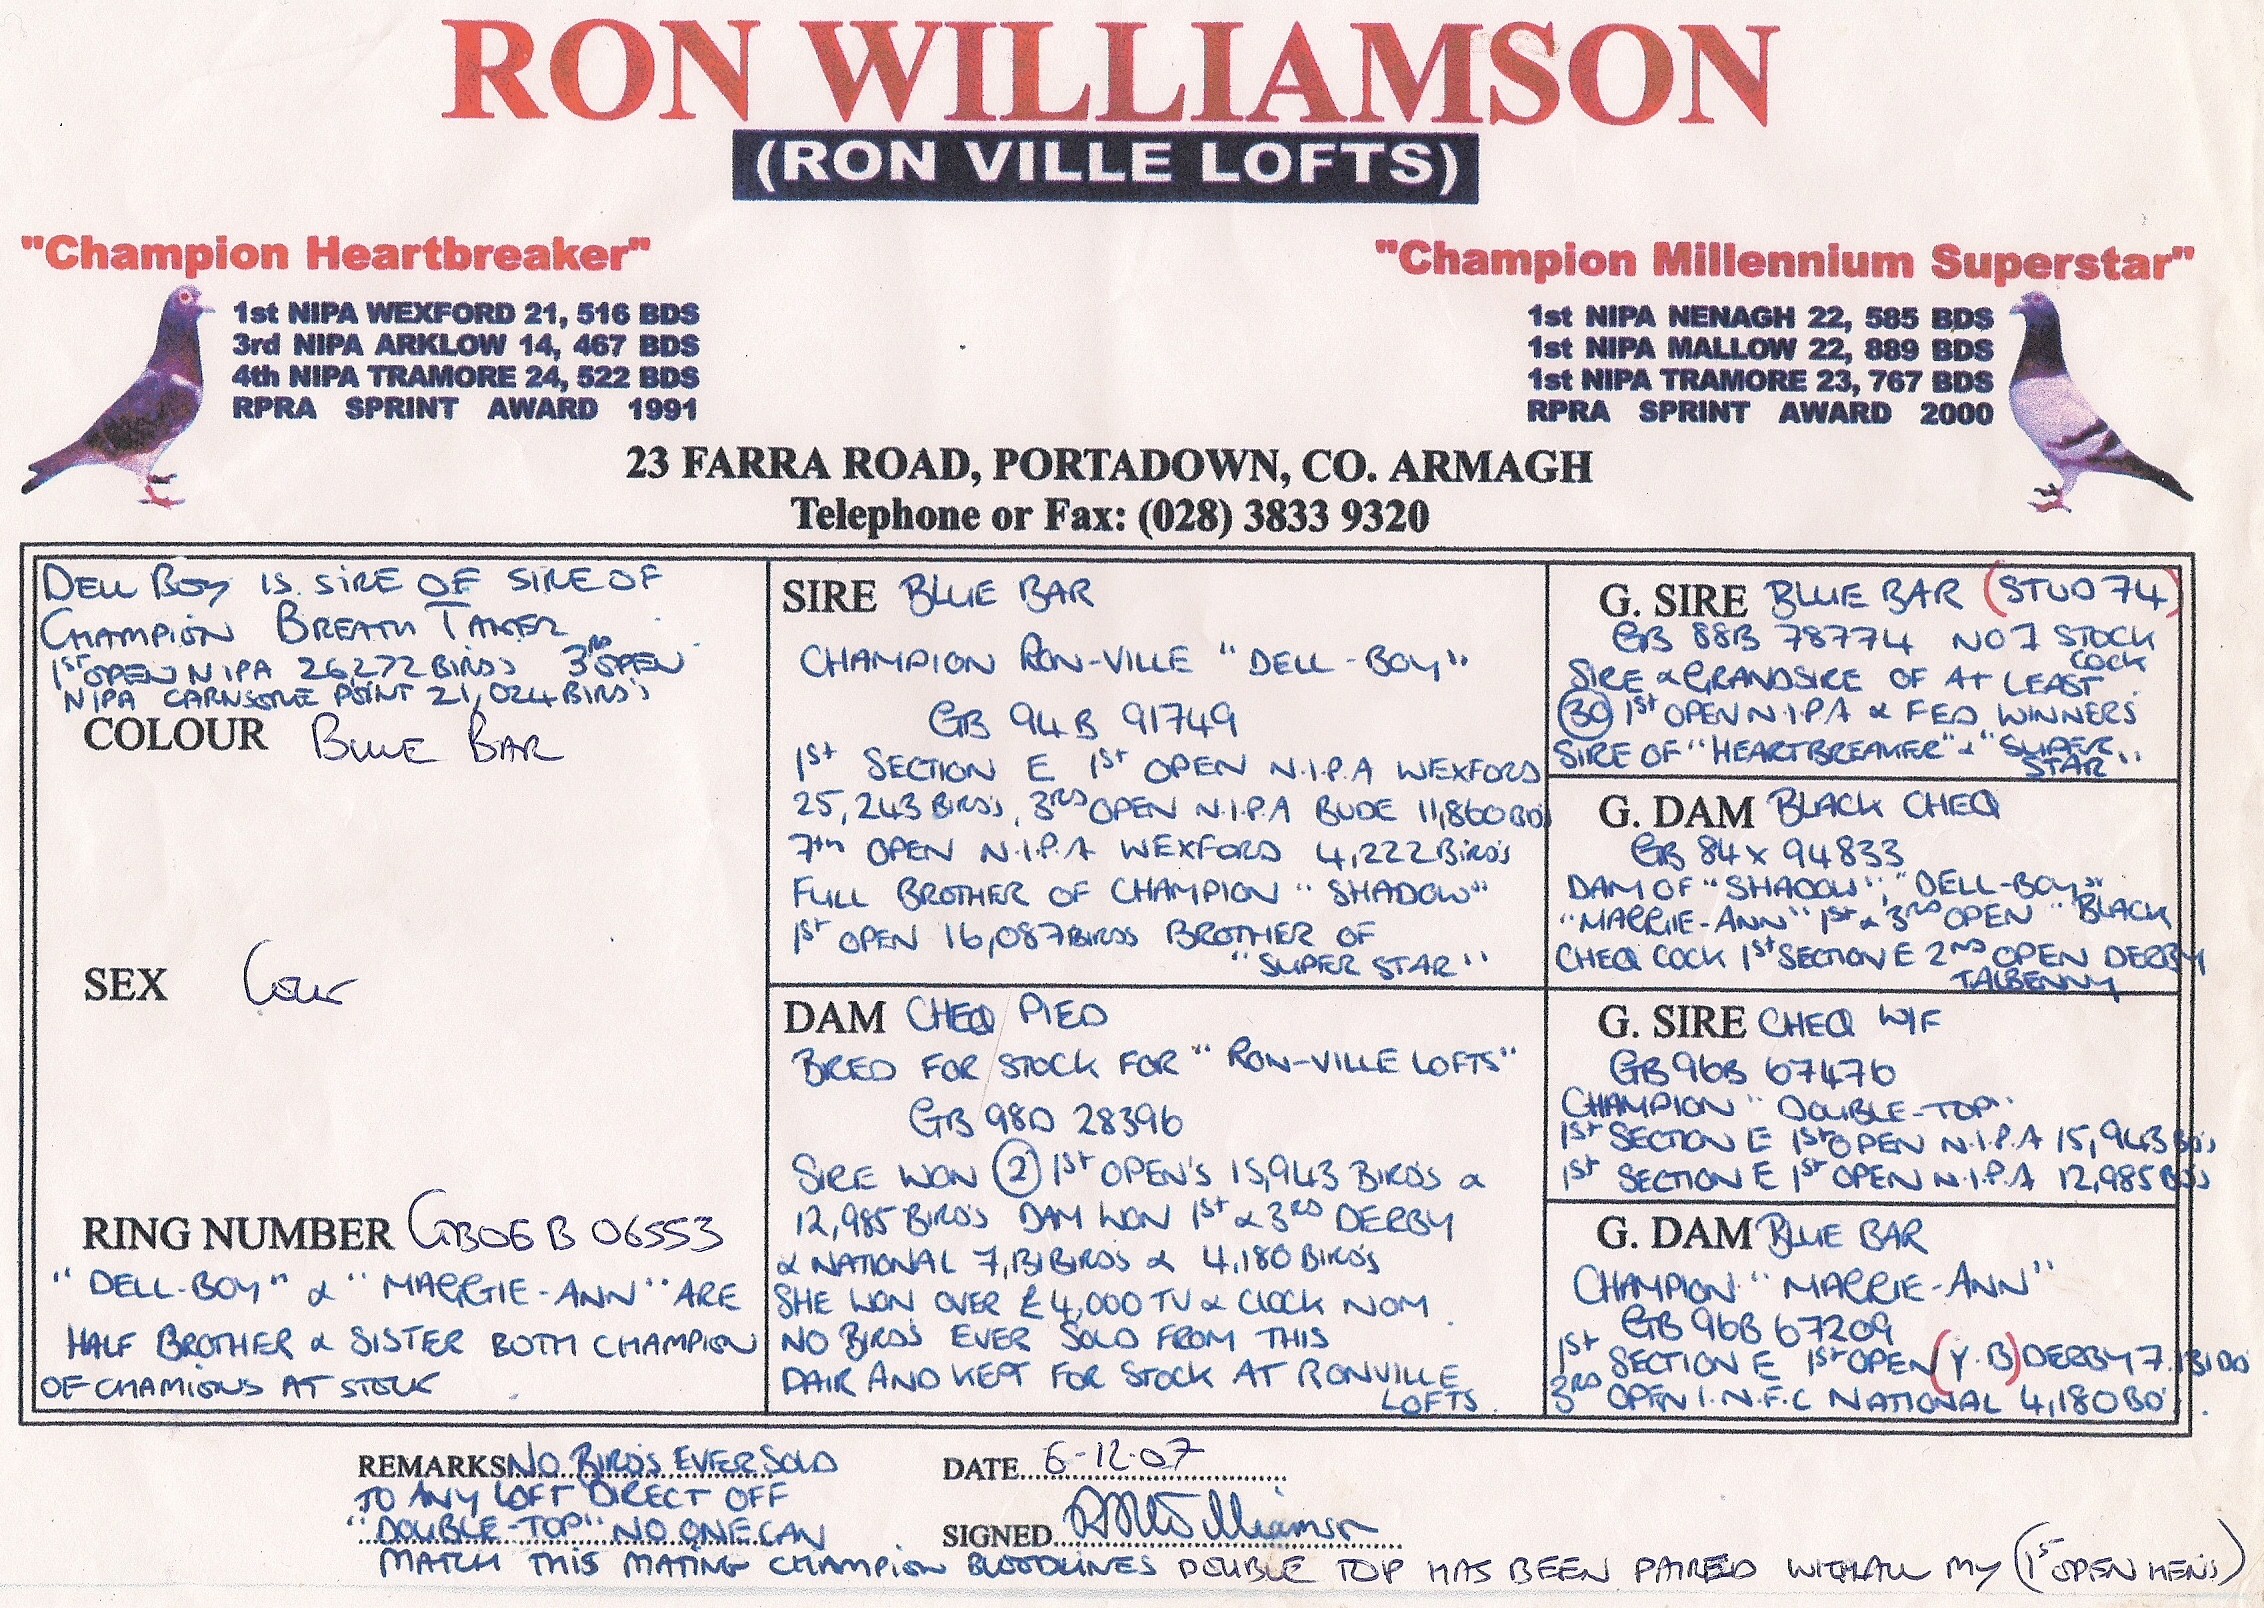 RON WILLIAMSON
(RON VILLE LOFTS)
"Champion Heartbreaker"
1st NIPA WEXFORD 21, 516 BDS
3rd NIPA ARKLOW 14, 467 BDS
4th NIPA TRAMORE 24, 522 BDS
RPRA SPRINT AWARD 1991
"Champion Millennium Superstar"
1st NIPA NENAGH 22, 585 BDS
1st NIPA MALLOW 22, 889 BDS
1st NIPA TRAMORE 23, 767 BDS
RPRA SPRINT AWARD 2000
23 FARRA ROAD, PORTADOWN, CO. ARMAGH
Telephone or Fax: (028) 3833 9320
DELL BOY IS SIRE OF SIRE OF
CHAMPION BREATH TAKER
1ST OPEN NIPA 26272 BIRD'S 3RD OPEN
NIPA CARNSORE POINT 21,024 BIRD'S
COLOUR BLUE BAR
SEX
RING NUMBER GB06 B 06553
"DELL-BOY" & "MAGGIE-ANN" ARE
HALF BROTHER & SISTER BOTH CHAMPION
OF CHAMIONS AT STOCK
SIRE BLUE BAR
CHAMPION RON-VILLE "DELL-BOY"
GB 94 B 91749
1st SECTION E 1st OPEN N.I.P.A WEXFORD
25,243 BIRD'S, 3RD OPEN N.I.P.A BUDE 11,860 BDS
7th OPEN N.I.P.A WEXFORD 4,222 BIRD'S
FULL BROTHER OF CHAMPION "SHADOW"
1st OPEN 16,087 BIRDS BROTHER OF
"SUPER STAR"
DAM CHEQ PIED
BRED FOR STOCK FOR "RON-VILLE LOFTS"
GB 98D 28396
SIRE WON (2) 1ST OPEN'S 15,943 BIRD'S &
12,985 BIRD'S DAM WON 1ST & 3RD DERBY
& NATIONAL 7,131 BIRD'S & 4,180 BIRD'S
SHE WON OVER £4,000 TV & CLOCK NOM
NO BIRD'S EVER SOLD FROM THIS
PAIR AND KEPT FOR STOCK AT RONVILLE
LOFTS.
G. SIRE BLUE BAR (STUD 74)
GB 88B 78774 NO 7 STOCK
COCK
SIRE & GRANDSIRE OF AT LEAST
(30) 1ST OPEN N.I.P.A & FED WINNERS
SIRE OF "HEARTBREAKER" & "SUPER
STAR"
G. DAM BLACK CHEQ
GB 84 X 94833
DAM OF "SHADOW", "DELL-BOY"
"MAGGIE-ANN" 1st & 3RD OPEN "BLACK
CHEQ COCK 1st SECTION E 2ND OPEN DERBY
TALBENNY
G. SIRE CHEQ W/F
GB 96B 67476
CHAMPION "DOUBLE-TOP"
1ST SECTION E 1ST OPEN N.I.P.A 15,943 BD'S
1ST SECTION E 1ST OPEN N.I.P.A 12,985 BD'S
G. DAM BLUE BAR
CHAMPION "MAGGIE-ANN"
GB 96B 67209
1st SECTION E 1st OPEN (Y.B) DERBY
3RD OPEN I.N.F.C NATIONAL 4,180 BD'S
REMARKS NO BIRD'S EVER SOLD
TO ANY LOFT DIRECT OFF
"DOUBLE-TOP" NO ONE CAN
MATCH THIS MATING CHAMPION BLOODLINES DOUBLE TOP HAS BEEN PAIRED WITH ALL MY (1ST OPEN HENS)
DATE 6-12-07
SIGNED R Williamson